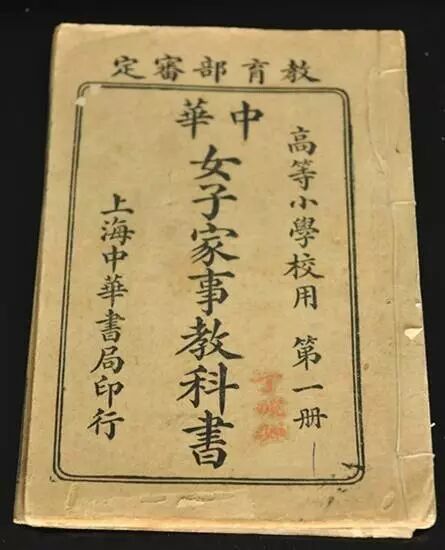 教育部審定
高等小學校用 第一册
中華
女子家事教科書
上海中華書局印行